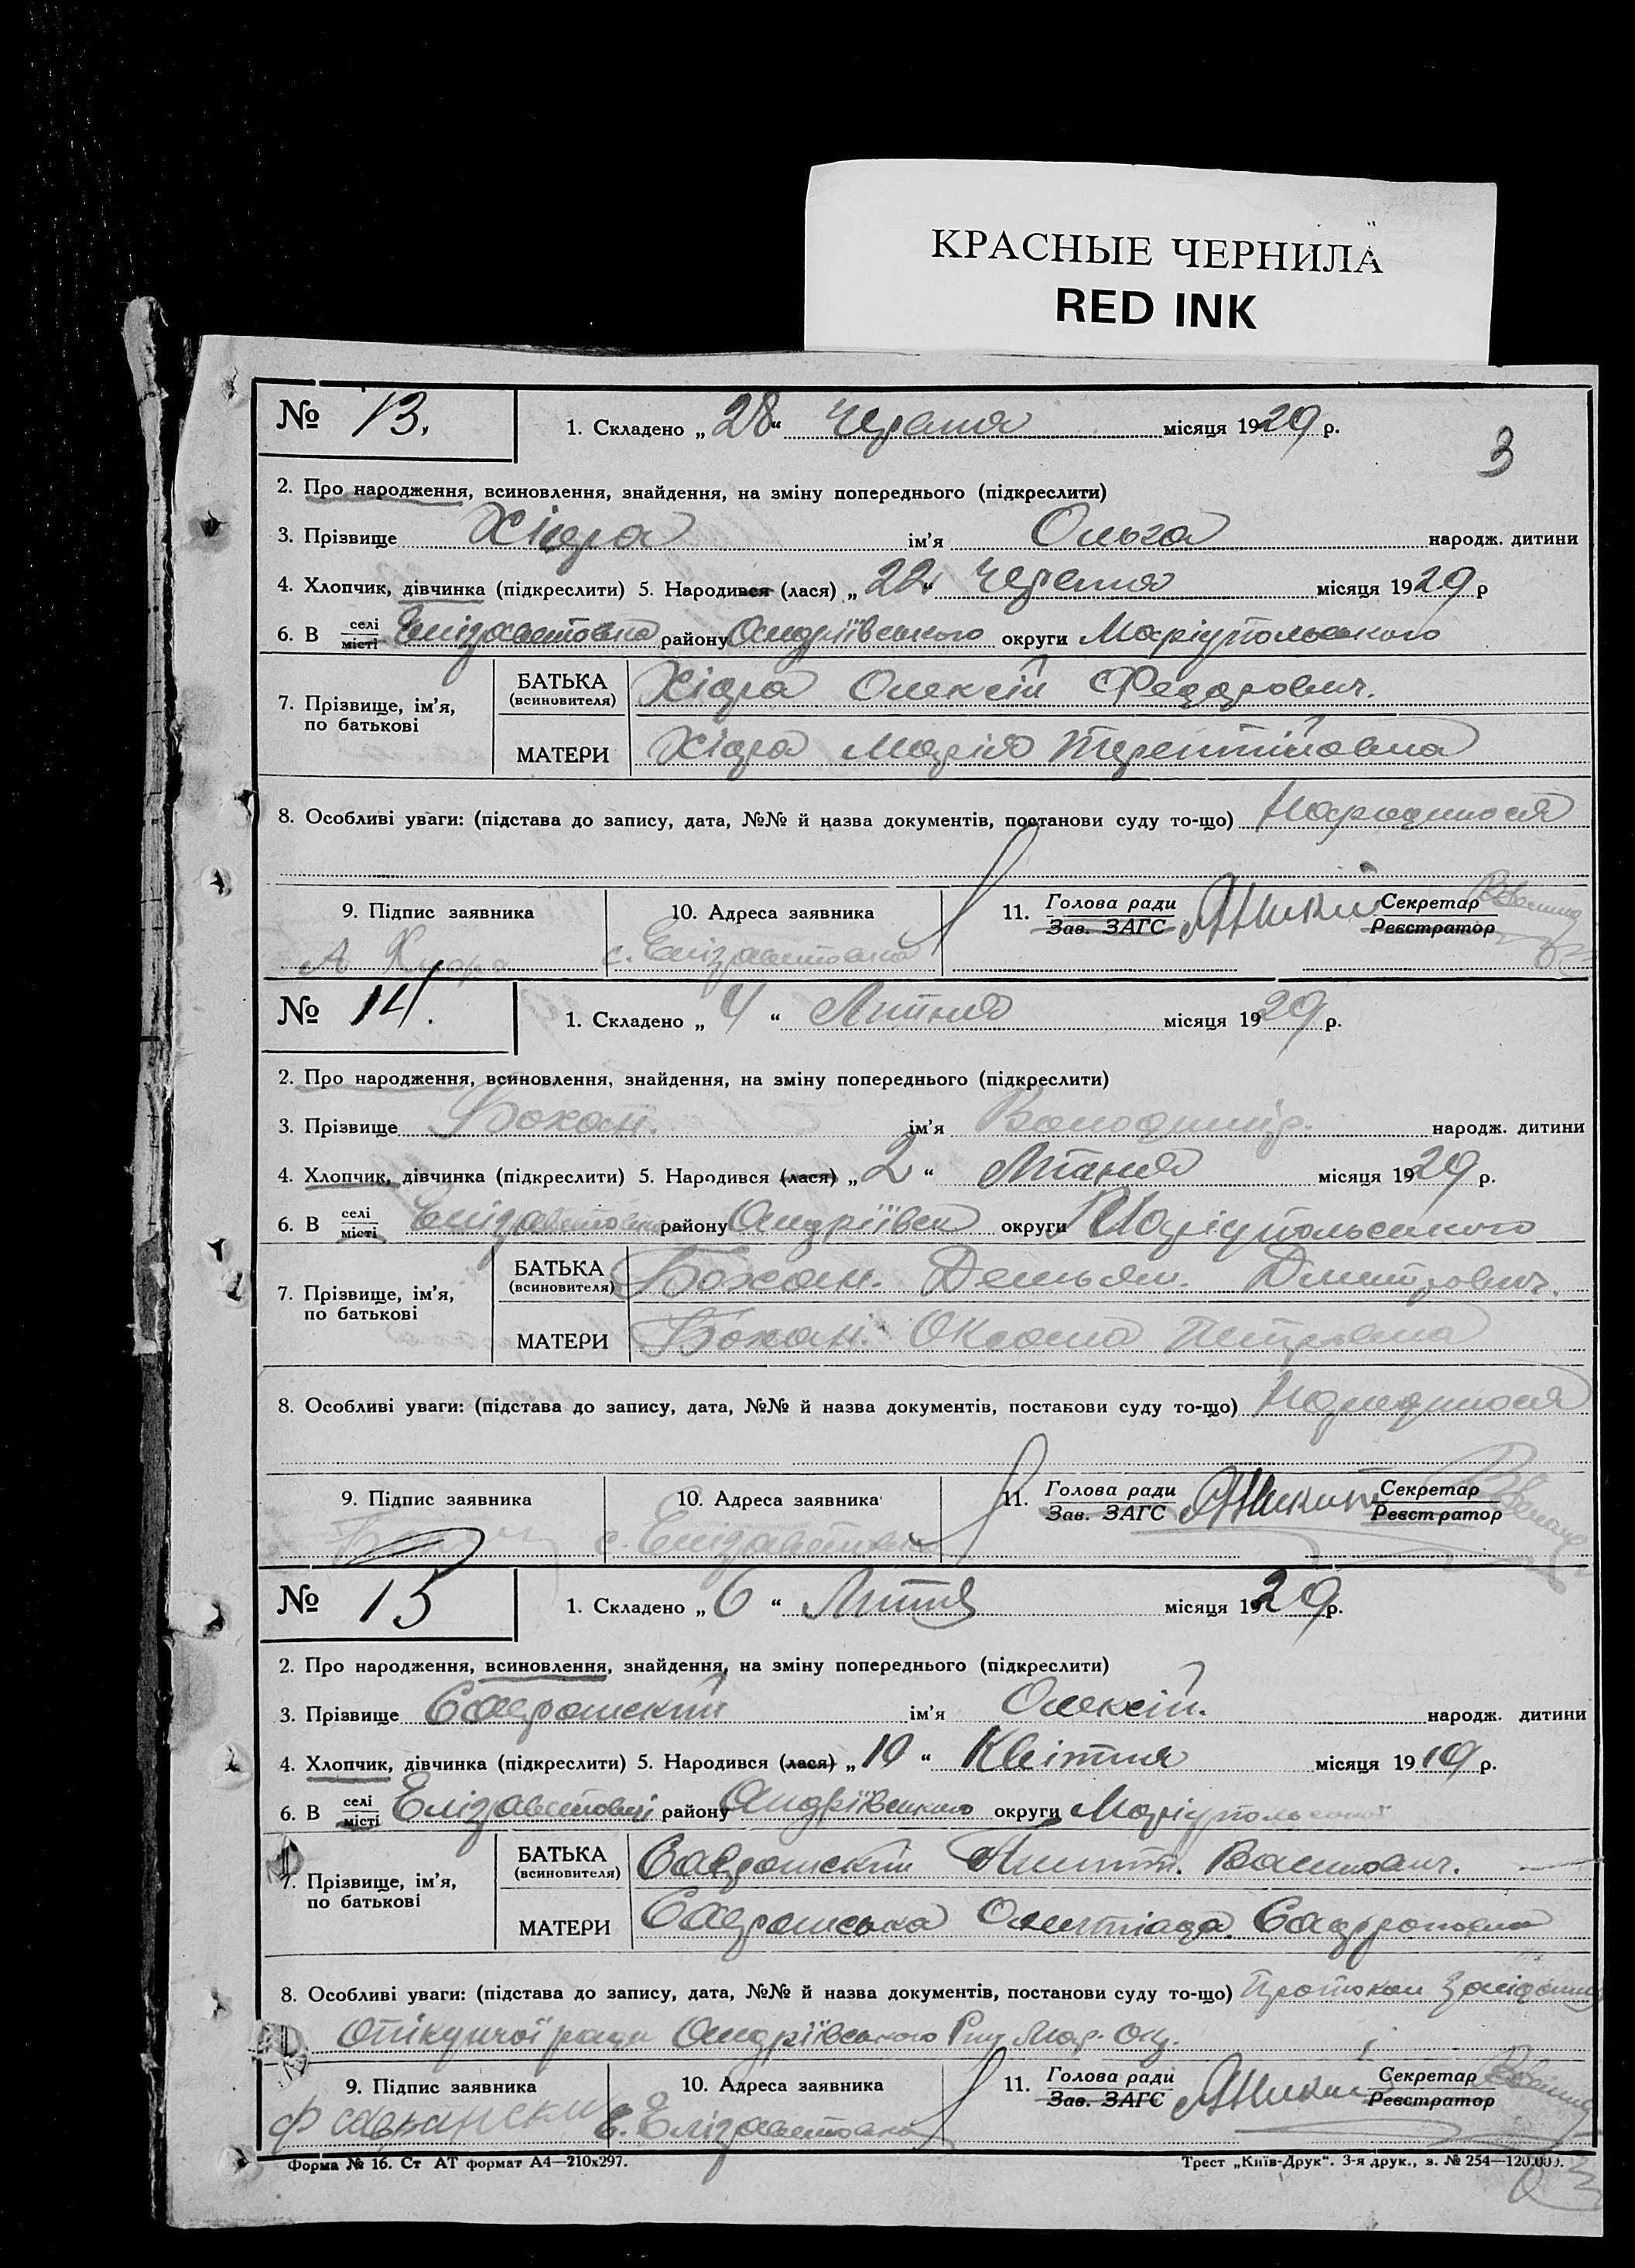 КРАСНЫЕ ЧЕРНИЛА
RED INK
3
№ 13. 1. Складено „28“ Червня місяця 1929 р.
2. Про народження, всиновлення, знайдення, на зміну попереднього (підкреслити)
3. Прізвище Хідра ім’я Ольга народж. дитини
4. Хлопчик, дівчинка (підкреслити) 5. Народився (лася) „22“ Червня місяця 1929 р
6. В селі місті Елізаветовка району Андріївського округи Маріупольського
7. Прізвище, ім’я, по батькові
БАТЬКА (всиновителя) Хідра Олексій Федорович.
МАТЕРИ Хідра Марія Терентіївна
8. Особливі уваги: (підстава до запису, дата, №№ й назва документів, постанови суду то-що) Народилася
9. Підпис заявника 10. Адреса заявника 11. Голова ради Зав. ЗАГС Секретар Реєстратор
А Хидра с. Елізаветовка
№ 14. 1. Складено „4“ Липня місяця 1929 р.
2. Про народження, всиновлення, знайдення, на зміну попереднього (підкреслити)
3. Прізвище Бохан. ім’я Володимир. народж. дитини
4. Хлопчик, дівчинка (підкреслити) 5. Народився (лася) „2“ Липня місяця 1929 р.
6. В селі місті Елізаветовка району Андріївськ округи Маріупольського
7. Прізвище, ім’я, по батькові
БАТЬКА (всиновителя) Бохан. Демьян. Дмитрович.
МАТЕРИ Бохан. Оксана Петровна
8. Особливі уваги: (підстава до запису, дата, №№ й назва документів, постанови суду то-що) Народилося
9. Підпис заявника 10. Адреса заявника 11. Голова ради Зав. ЗАГС Секретар Реєстратор
с. Елізаветовка
№ 15 1. Складено „6“ Липня місяця 1929 р.
2. Про народження, всиновлення, знайдення, на зміну попереднього (підкреслити)
3. Прізвище ім’я Олексій. народж. дитини
4. Хлопчик, дівчинка (підкреслити) 5. Народився (лася) „10“ Квітня місяця 1919 р.
6. В селі місті Елізаветовці району Андріївського округи Маріупольської
7. Прізвище, ім’я, по батькові
БАТЬКА (всиновителя)
МАТЕРИ
8. Особливі уваги: (підстава до запису, дата, №№ й назва документів, постанови суду то-що) Протокол Засідання
Опікунчої ради Андріївського Мар. Окр.
9. Підпис заявника 10. Адреса заявника 11. Голова ради Зав. ЗАГС Секретар Реєстратор
с. Елізаветовка
Форма № 16. Ст АТ формат А4—210x297. Трест „Київ-Друк“. 3-я друк., з. № 254—120.000.